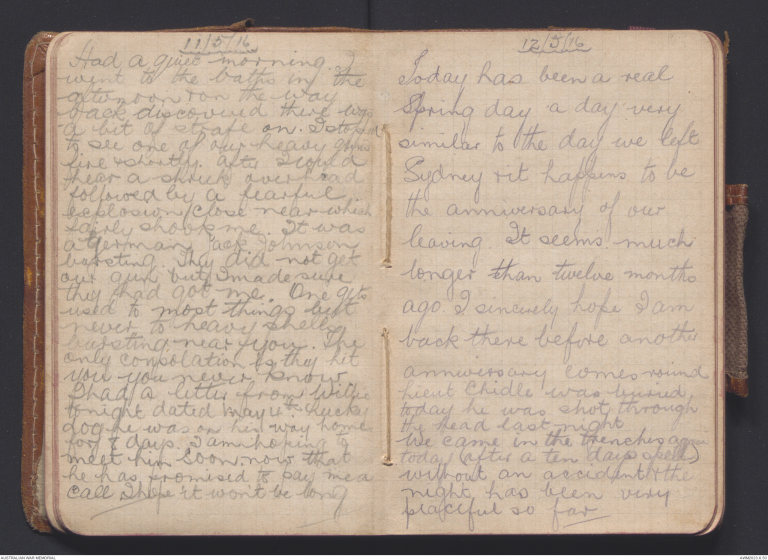 11/5/16
Had a quiet morning. I
went to the baths in the
afternoon & on the way
back discovered there was
a bit of strafe on. I stopped
to see one of our heavy guns
fire & shortly after I could
hear a shriek overhead
followed by a fearful
explosion close near which
fairly shook me. It was
a German Jack Johnson
bursting. They did not get
our gun but I made sure
they had got me. One gets
used to most things but
never to heavy shells
bursting near you. The
only consolation is they hit
you you never know
I had a letter from Willie
tonight dated May 4th. Lucky
dog he was on his way home
for 7 days. I am hoping to
meet him soon now that
he has promised to pay me a
call I hope it won't be long
12/5/16
Today has been a real
Spring day a day very
similar to the day we left
Sydney & it happens to be
the anniversary of our
leaving. It seems much
longer than twelve months
ago. I sincerely hope I am
back there before another
anniversary comes round
Lieut Chidle was buried
today he was shot through
the head last night
We came in the trenches again
today (after a ten days spell)
without an accident & the
night has been very
peaceful so far
AUSTRALIAN WAR MEMORIAL